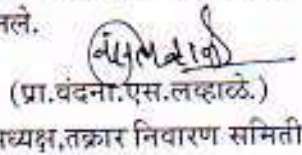 तले.
(प्रा.वंदना.एस.लव्हाळे.)
ध्यक्ष,तक्रार निवारण समिती